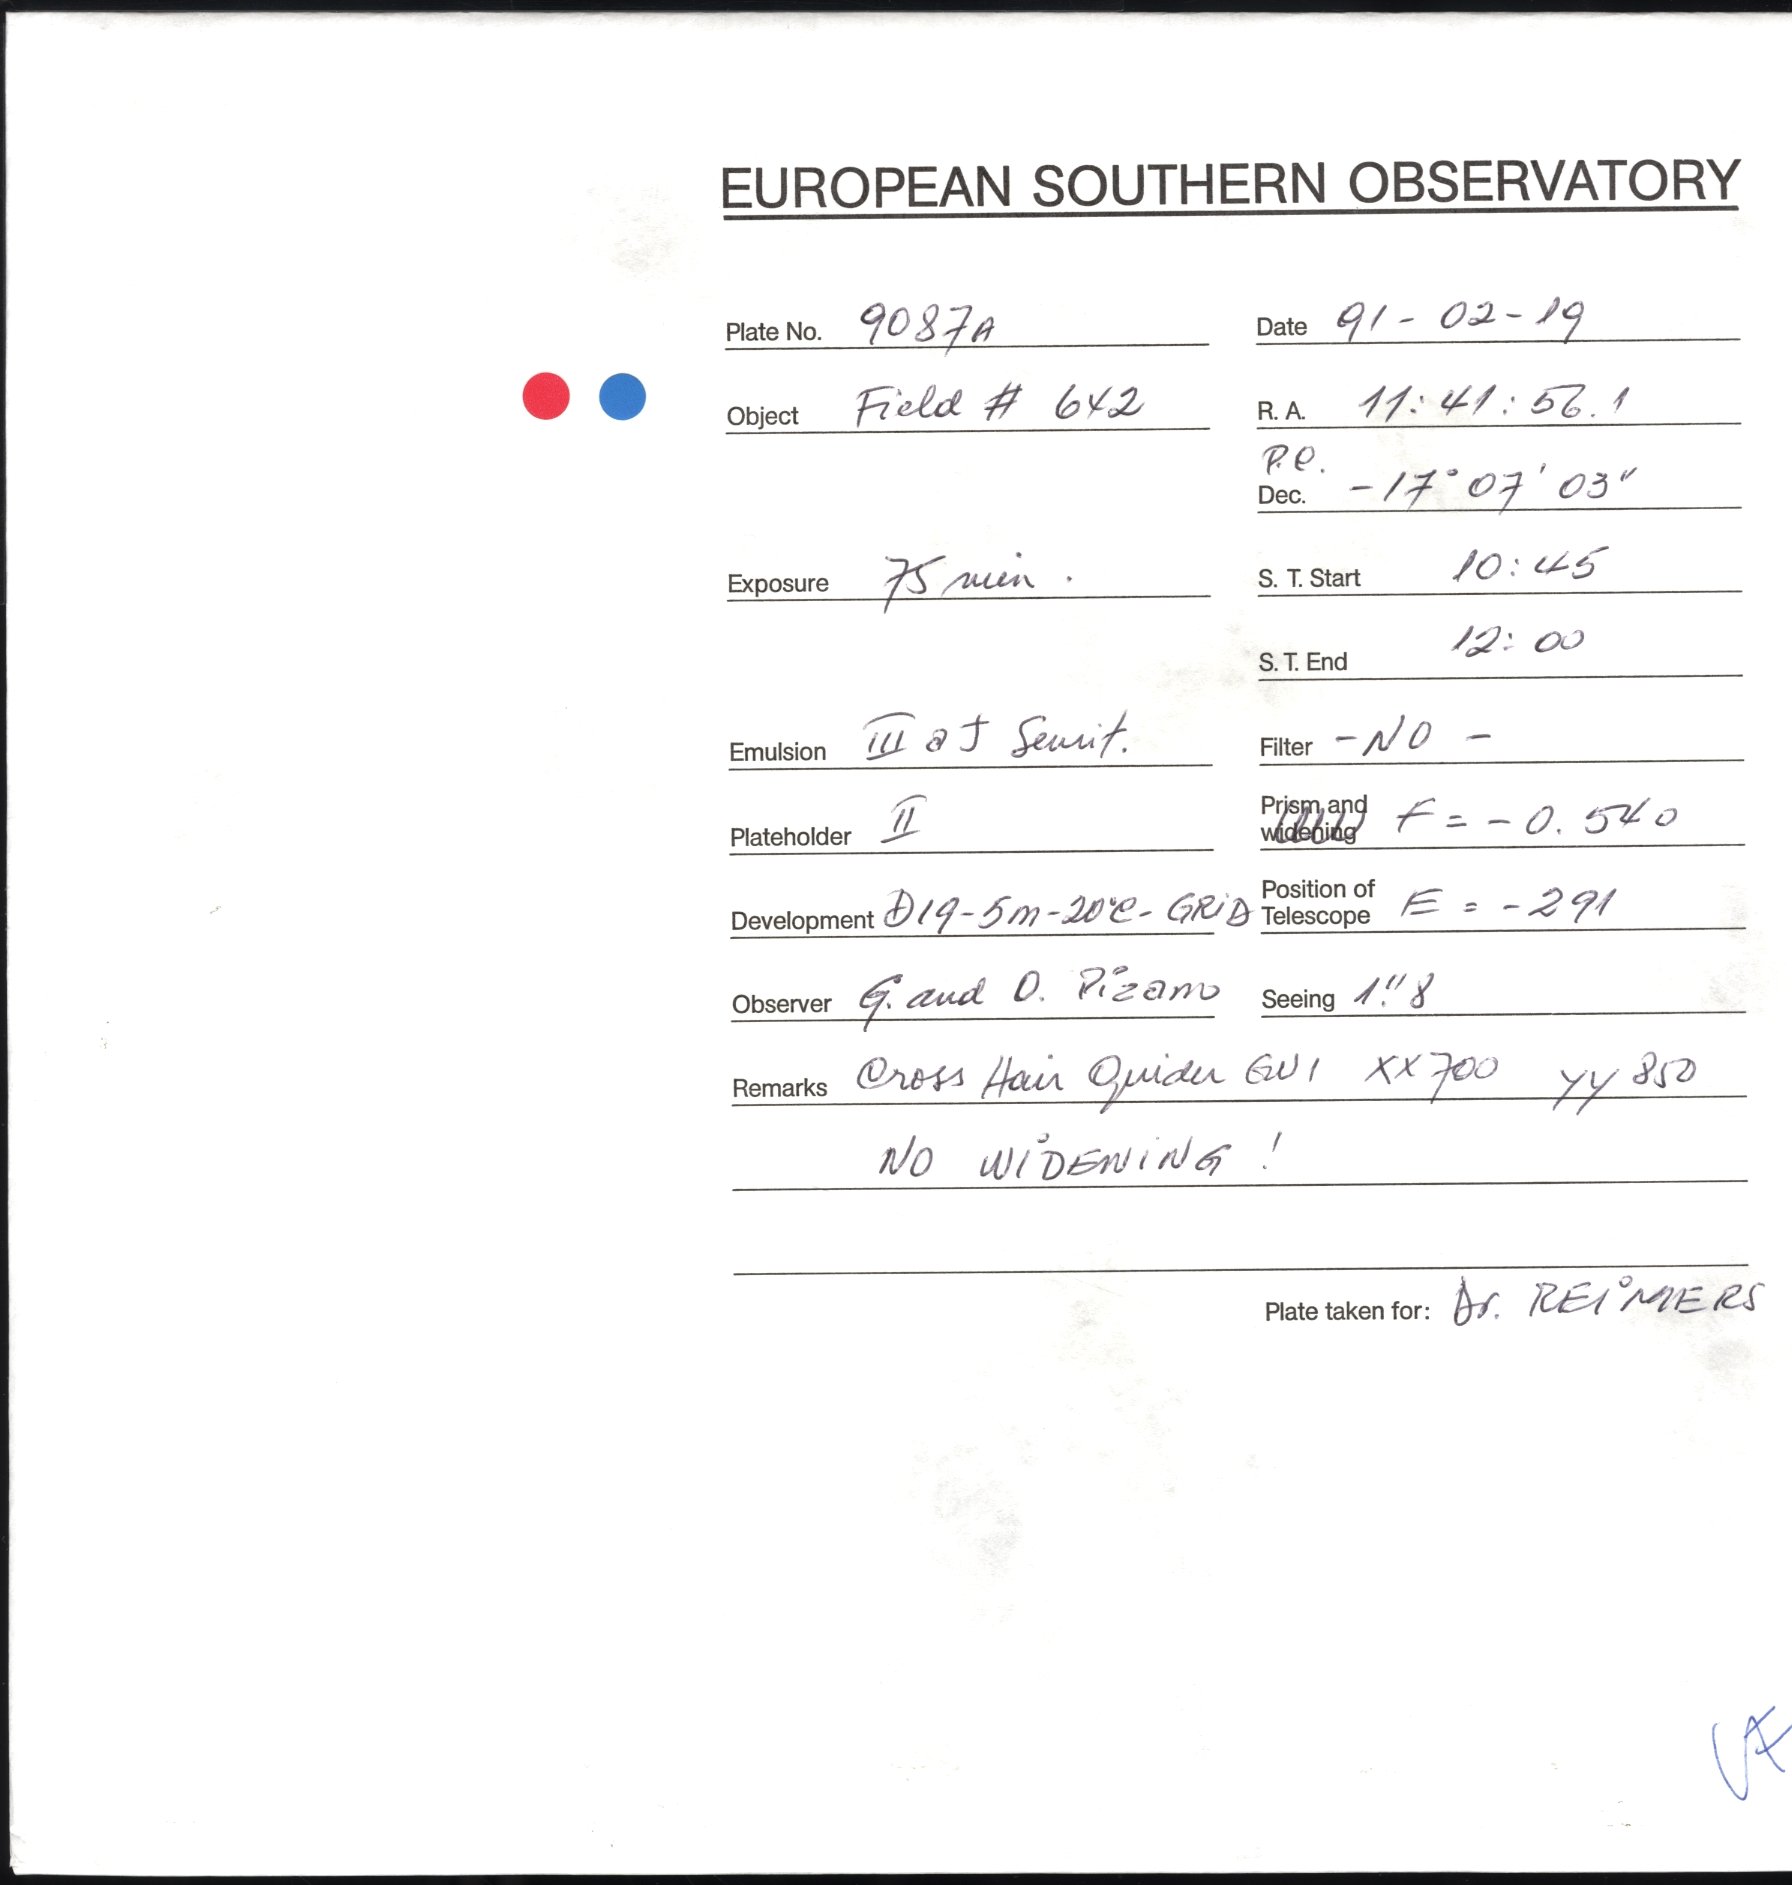 EUROPEAN SOUTHERN OBSERVATORY
Plate No. 9087A Date 91-02-19
Object Field # 642 R. A. 11:41:56.1
P.C.
Dec. -17° 07' 03"
Exposure 75 min. S. T. Start 10:45
S. T. End 12:00
Emulsion III a J Sensit. Filter -NO-
Plateholder II Prism and widening F = -0.540
Development D19-5m-20°C-GRID Position of Telescope E = -291
Observer G. and O. Pizarro Seeing 1."8
Remarks Cross Hair Guider GW1 XX700 YY 850
NO WIDENING!
Plate taken for: Dr. REIMERS